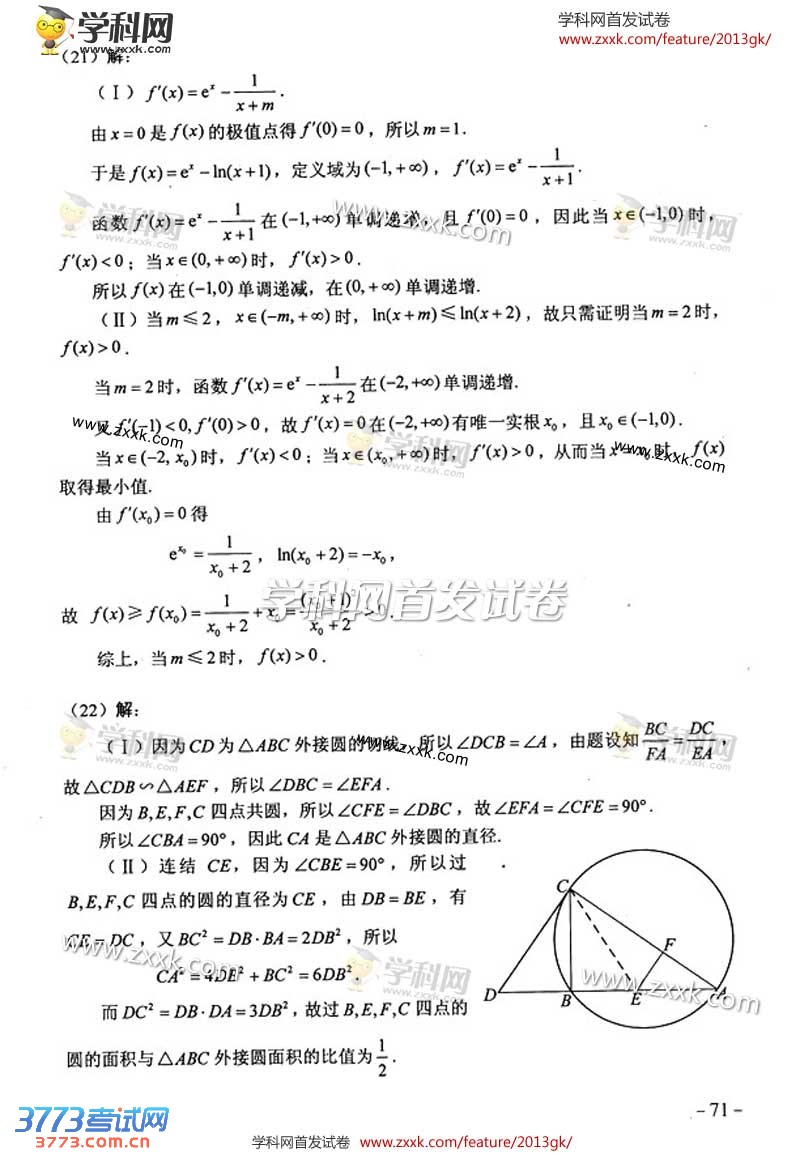 学科网
www.zxxk.com
学科网首发试卷
www.zxxk.com/feature/2013gk/
(21)解:
(Ⅰ) f′(x) = eˣ − 1/(x+m).
由 x = 0 是 f(x) 的极值点得 f′(0) = 0，所以 m = 1.
于是 f(x) = eˣ − ln(x+1)，定义域为(−1, +∞)，f′(x) = eˣ − 1/(x+1).
函数 f′(x) = eˣ − 1/(x+1) 在 (−1,+∞) 单调递增，且 f′(0) = 0，因此当 x∈(−1,0) 时，
f′(x) < 0；当 x∈(0, +∞) 时，f′(x) > 0.
所以 f(x) 在 (−1,0) 单调递减，在(0, +∞) 单调递增.
(Ⅱ) 当 m ⩽ 2，x∈(−m, +∞) 时，ln(x+m) ⩽ ln(x+2)，故只需证明当 m = 2 时，
f(x) > 0.
当 m = 2 时，函数 f′(x) = eˣ − 1/(x+2) 在 (−2,+∞) 单调递增.
又 f′(−1) < 0, f′(0) > 0，故 f′(x) = 0 在 (−2,+∞) 有唯一实根 x₀，且 x₀∈(−1,0).
当 x∈(−2, x₀) 时，f′(x) < 0；当 x∈(x₀, +∞) 时，f′(x) > 0，从而当 x = x₀ 时，f(x)
取得最小值.
由 f′(x₀) = 0 得
e^(x₀) = 1/(x₀+2)，ln(x₀+2) = −x₀，
故 f(x) ⩾ f(x₀) = 1/(x₀+2) + x₀ = (x₀+1)²/(x₀+2) > 0.
学科网首发试卷
综上，当 m ⩽ 2 时，f(x) > 0.
(22)解:
(Ⅰ) 因为 CD 为 △ABC 外接圆的切线，所以 ∠DCB = ∠A，由题设知 BC/FA = DC/EA，
故 △CDB ∽ △AEF，所以 ∠DBC = ∠EFA.
因为 B,E,F,C 四点共圆，所以 ∠CFE = ∠DBC，故 ∠EFA = ∠CFE = 90°.
所以 ∠CBA = 90°，因此 CA 是 △ABC 外接圆的直径.
(Ⅱ) 连结 CE，因为 ∠CBE = 90°，所以过
B,E,F,C 四点的圆的直径为 CE，由 DB = BE，有
CE = DC，又 BC² = DB·BA = 2DB²，所以
CA² = 4DB² + BC² = 6DB².
而 DC² = DB·DA = 3DB²，故过 B,E,F,C 四点的
圆的面积与 △ABC 外接圆面积的比值为 1/2.
C
F
D
B
E
A
−71−
3773考试网
3773.com.cn
学科网首发试卷 www.zxxk.com/feature/2013gk/